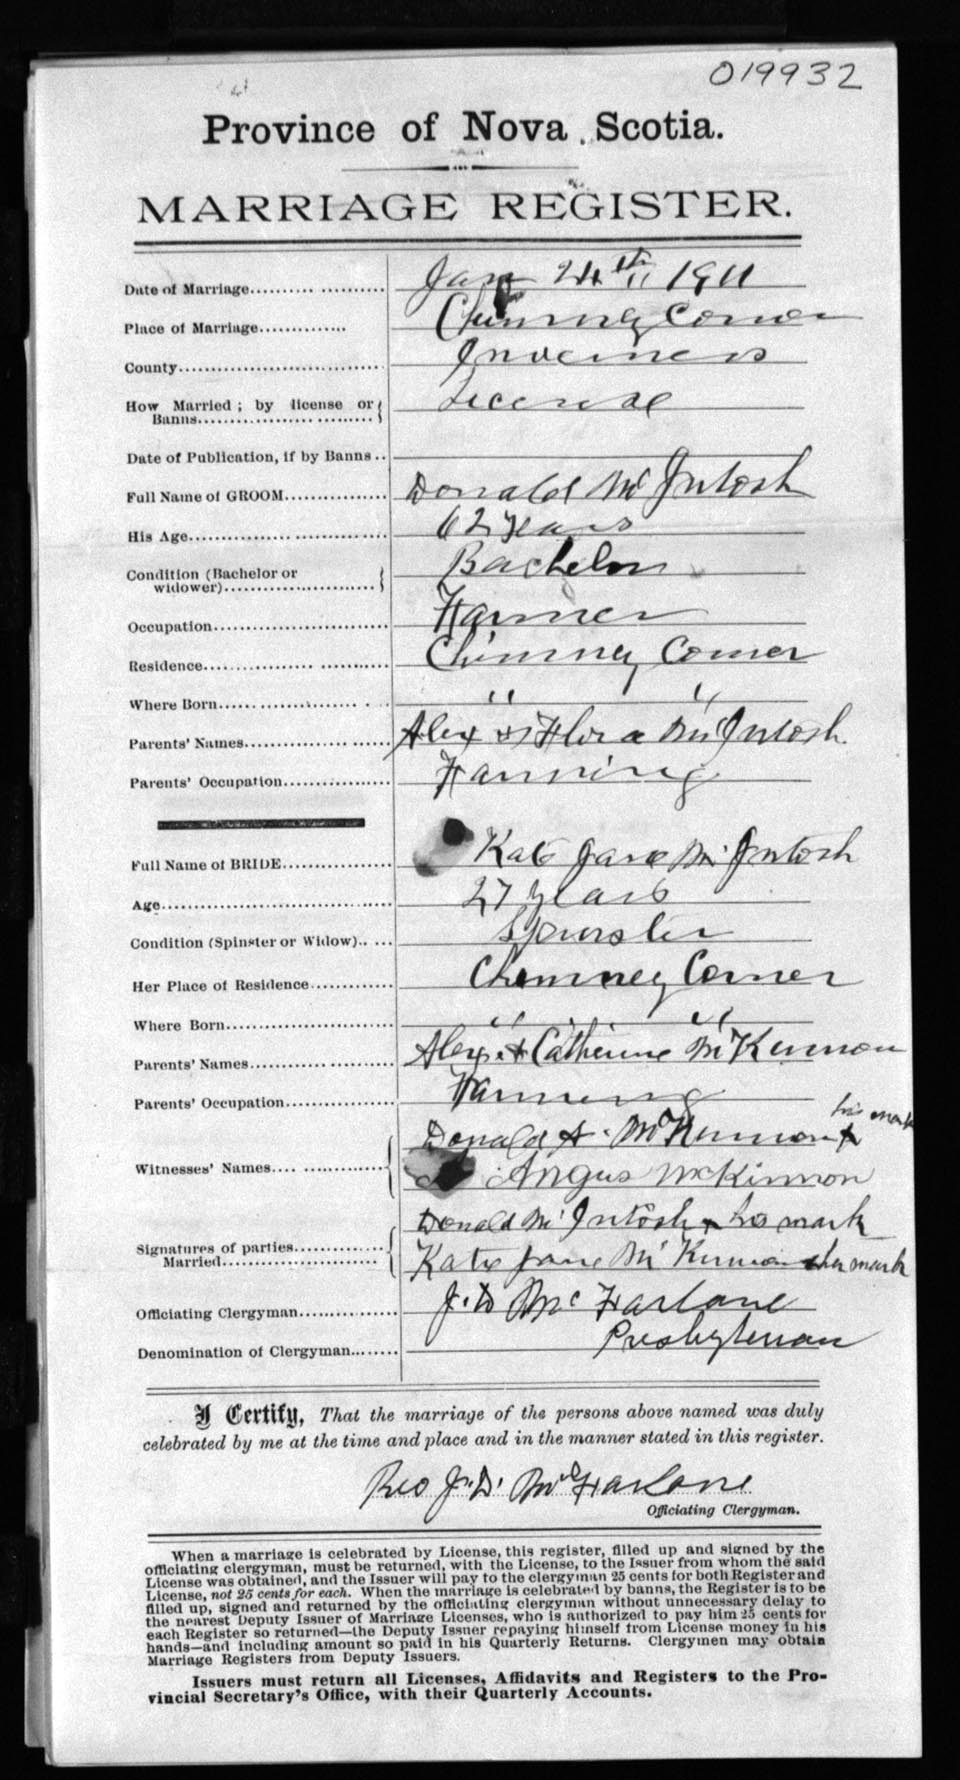 019932
Province of Nova Scotia.
MARRIAGE REGISTER.
Date of Marriage.................... Jan 24th 1911
Place of Marriage............. Chimney Corner
County............................... Inverness
How Married ; by license or Banns........................ License
Date of Publication, if by Banns ..
Full Name of GROOM............... Donald Mc Intosh
His Age............................. 62 years
Condition (Bachelor or widower)...................... Bachelor
Occupation.......................... Farmer
Residence........................... Chimney Corner
Where Born.......................... " "
Parents' Names..................... Alex & Flora Mc Intosh.
Parents' Occupation............... Farming
Full Name of BRIDE................ Kate Jane Mc Intosh
Age................................... 27 years
Condition (Spinster or Widow).. .... Spinster
Her Place of Residence............ Chimney Corner
Where Born......................... " "
Parents' Names..................... Alex. & Catherine McKinnon
Parents' Occupation............... Farming
Witnesses' Names.... ............ Donald A. McKinnon x his mark
Angus McKinnon
Signatures of parties............. Donald Mc Intosh x his mark
Married........................ Katie Jane Mc Kinnon x her mark
Officiating Clergyman............. J. D Mc Farlane
Denomination of Clergyman....... Presbyterian
I Certify, That the marriage of the persons above named was duly
celebrated by me at the time and place and in the manner stated in this register.
Rev J. D. McFarlane
Officiating Clergyman.
When a marriage is celebrated by License, this register, filled up and signed by the
officiating clergyman, must be returned, with the License, to the Issuer from whom the said
License was obtained, and the Issuer will pay to the clergyman 25 cents for both Register and
License, not 25 cents for each. When the marriage is celebrated by banns, the Register is to be
filled up, signed and returned by the officiating clergyman without unnecessary delay to
the nearest Deputy Issuer of Marriage Licenses, who is authorized to pay him 25 cents for
each Register so returned—the Deputy Issuer repaying himself from License money in his
hands—and including amount so paid in his Quarterly Returns. Clergymen may obtain
Marriage Registers from Deputy Issuers.
Issuers must return all Licenses, Affidavits and Registers to the Pro-
vincial Secretary's Office, with their Quarterly Accounts.